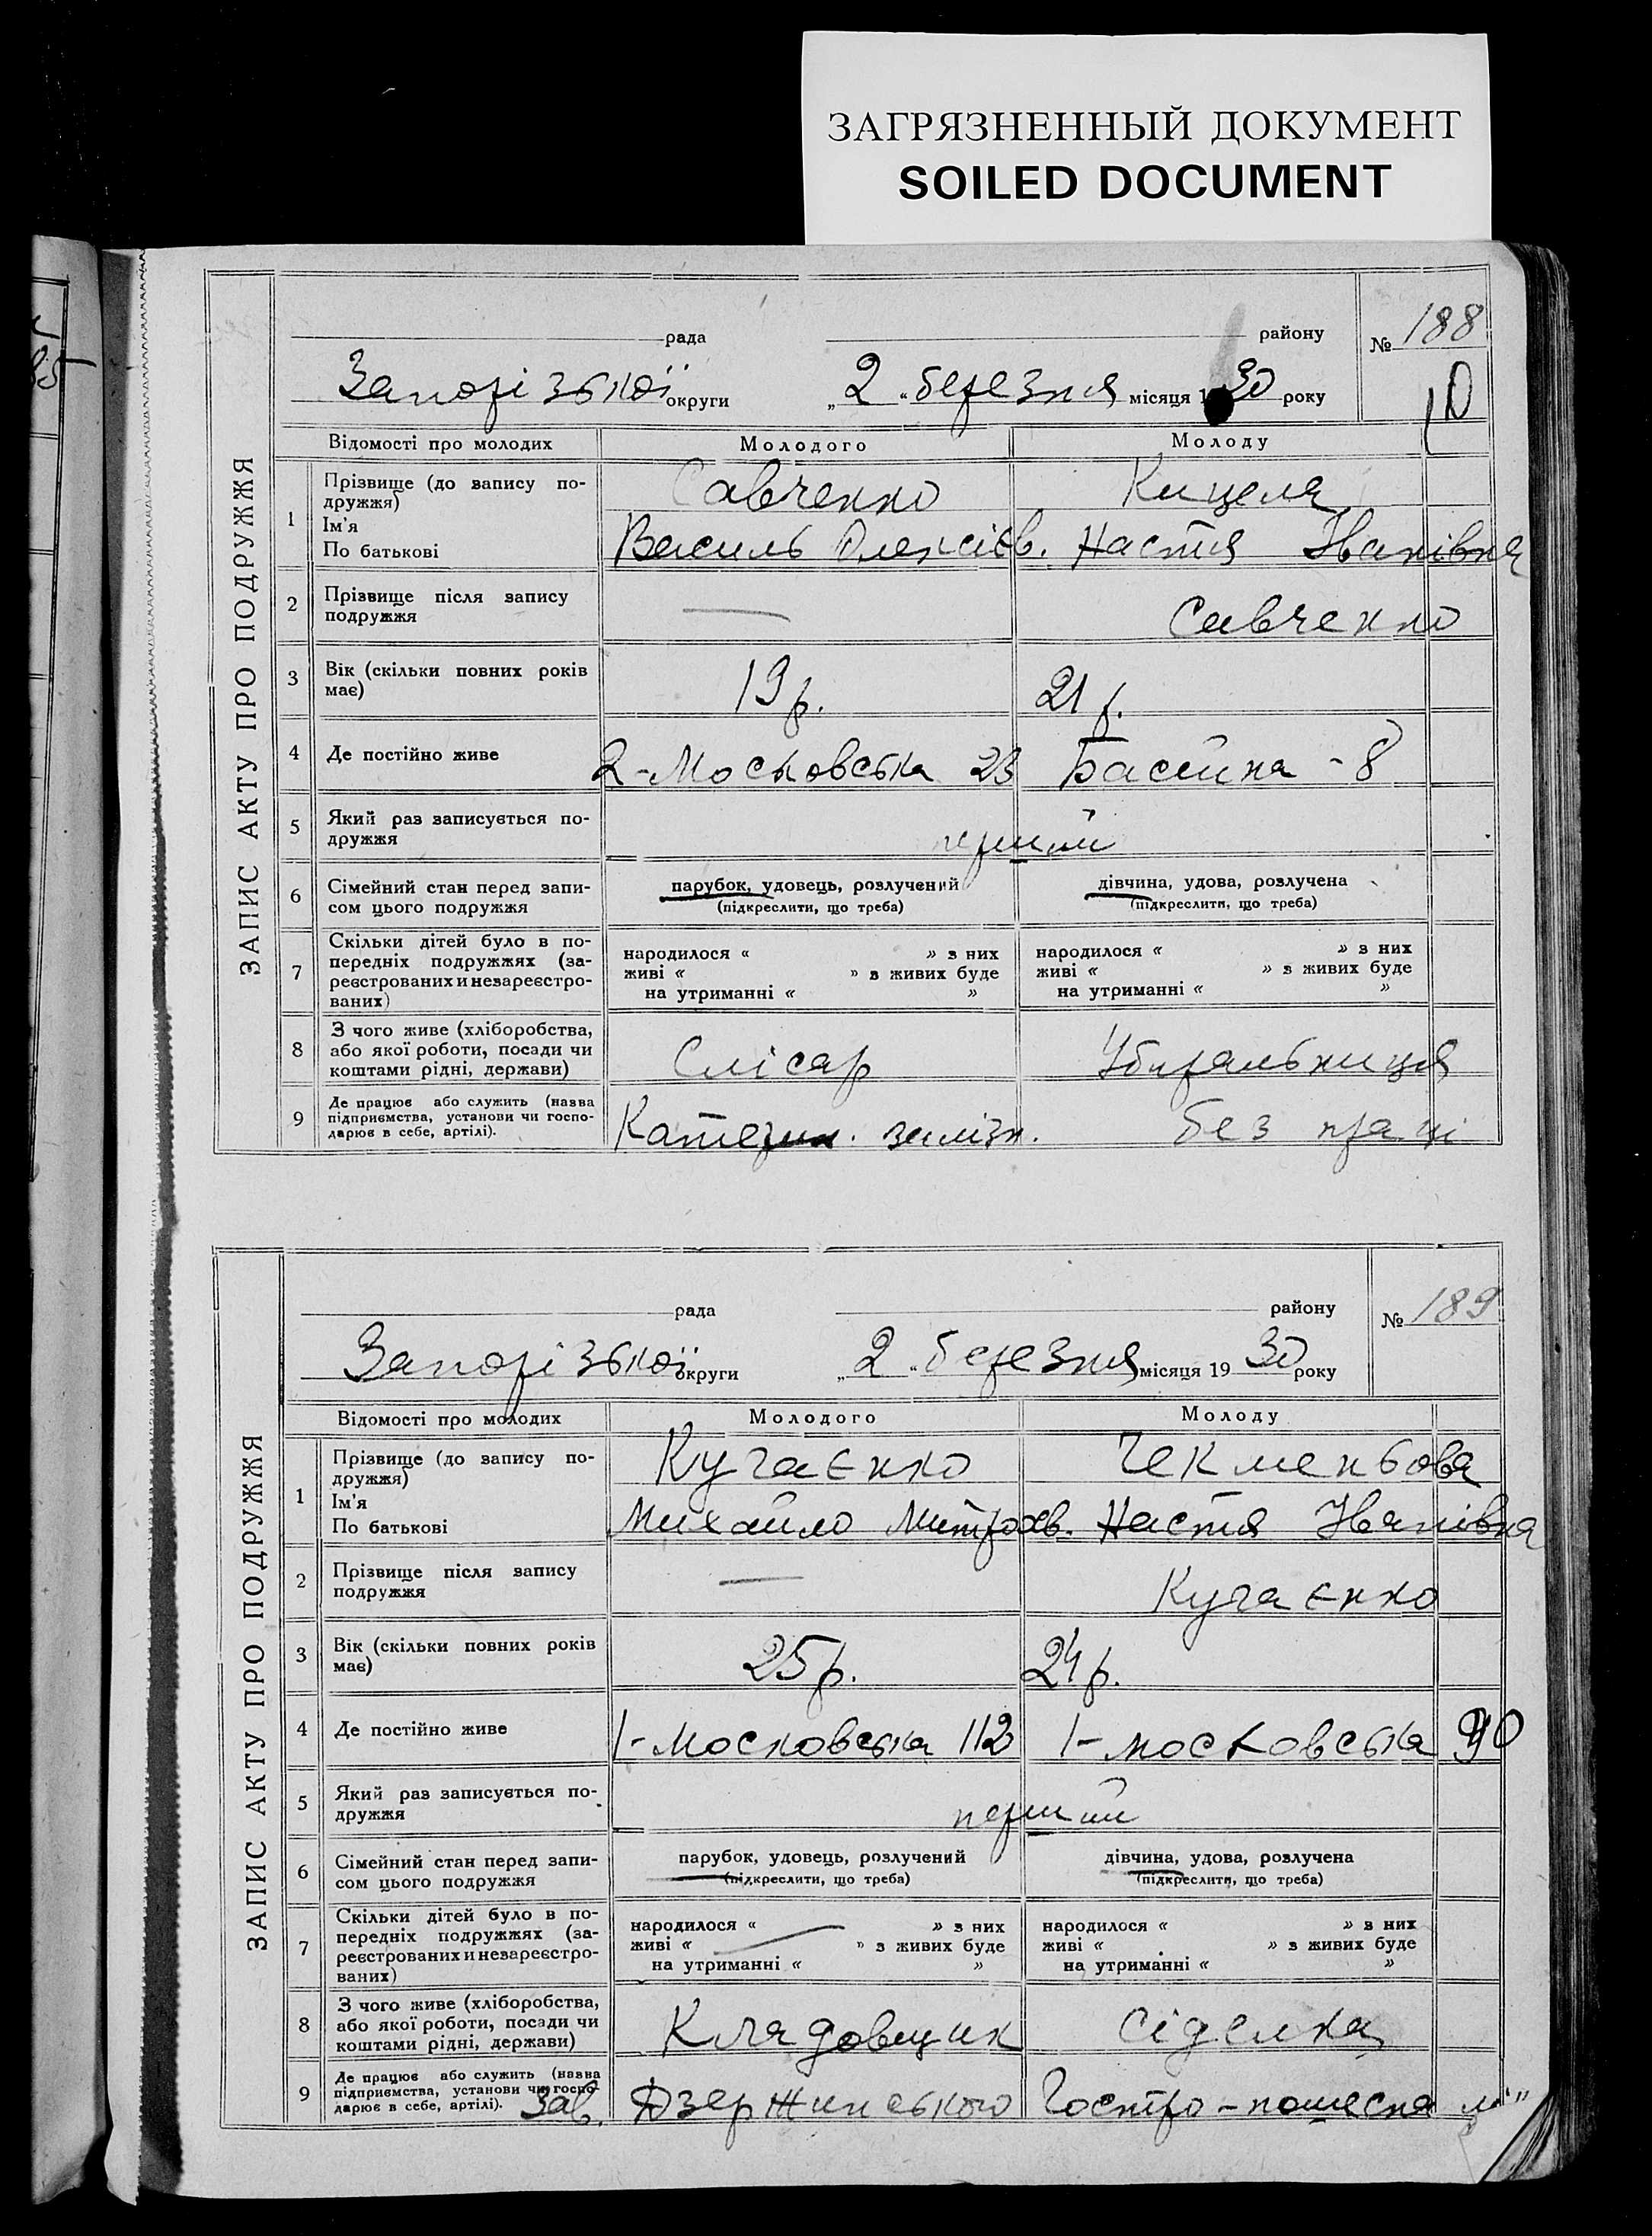 ЗАГРЯЗНЕННЫЙ ДОКУМЕНТ
SOILED DOCUMENT
85
ЗАПИС АКТУ ПРО ПОДРУЖЖЯ
рада району № 188
Запорізької округи „2“ березня місяця 1930 року
10
Відомості про молодих Молодого Молоду
1 Прізвище (до запису по-
дружжя) Савченко Кицеля
Ім'я
По батькові Василь Олексієв. Настя Іванівна
2 Прізвище після запису
подружжя — Савченко
3 Вік (скільки повних років
має) 19 р. 21 р.
4 Де постійно живе 2-Московська 23 Басейна - 8
5 Який раз записується по-
дружжя перший
6 Сімейний стан перед запи-
сом цього подружжя
парубок, удовець, розлучений дівчина, удова, розлучена
(підкреслити, що треба) (підкреслити, що треба)
7 Скільки дітей було в по-
передніх подружжях (за-
реєстрованих и незареєстро-
ваних)
народилося « » з них народилося « » з них
живі « » з живих буде живі « » з живих буде
на утриманні « » на утриманні « »
8 З чого живе (хліборобства,
або якої роботи, посади чи
коштами рідні, держави) Слісар Убиральниця
9 Де працює або служить (назва
підприємства, установи чи госпо-
дарює в себе, артілі). Катерин. залізн. без праці
ЗАПИС АКТУ ПРО ПОДРУЖЖЯ
рада району № 189
Запорізької округи „2“ березня місяця 1930 року
Відомості про молодих Молодого Молоду
1 Прізвище (до запису по-
дружжя) Кучаєнко Чекменьова
Ім'я
По батькові Михайло Митроф. Настя Іванівна
2 Прізвище після запису
подружжя — Кучаєнко
3 Вік (скільки повних років
має) 25 р. 24 р.
4 Де постійно живе 1-Московська 112 1-Московська 90
5 Який раз записується по-
дружжя перший
6 Сімейний стан перед запи-
сом цього подружжя
парубок, удовець, розлучений дівчина, удова, розлучена
(підкреслити, що треба) (підкреслити, що треба)
7 Скільки дітей було в по-
передніх подружжях (за-
реєстрованих и незареєстро-
ваних)
народилося « » з них народилося « » з них
живі « » з живих буде живі « » з живих буде
на утриманні « » на утриманні « »
8 З чого живе (хліборобства,
або якої роботи, посади чи
коштами рідні, держави) Кладовщик Сіделка
9 Де працює або служить (назва
підприємства, установи чи госпо-
дарює в себе, артілі). Зав. Дзержинського Гостро-пошесна